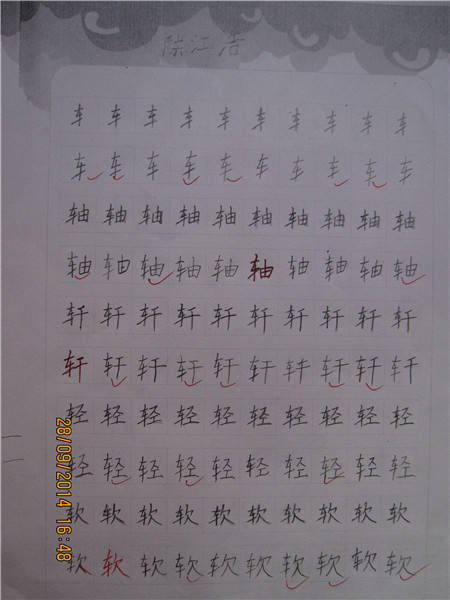 陈江浩
车 车 车 车 车 车 车 车 车 车
车 车 车 车 车 车 车 车 车 车
轴 轴 轴 轴 轴 轴 轴 轴 轴 轴
轴 轴 轴 轴 轴 轴 轴 轴 轴 轴
轩 轩 轩 轩 轩 轩 轩 轩 轩 轩
轩 轩 轩 轩 轩 轩 轩 轩 轩 轩
轻 轻 轻 轻 轻 轻 轻 轻 轻 轻
轻 轻 轻 轻 轻 轻 轻 轻 轻 轻
软 软 软 软 软 软 软 软 软 软
软 软 软 软 软 软 软 软 软 软
28/09/2014 16:48